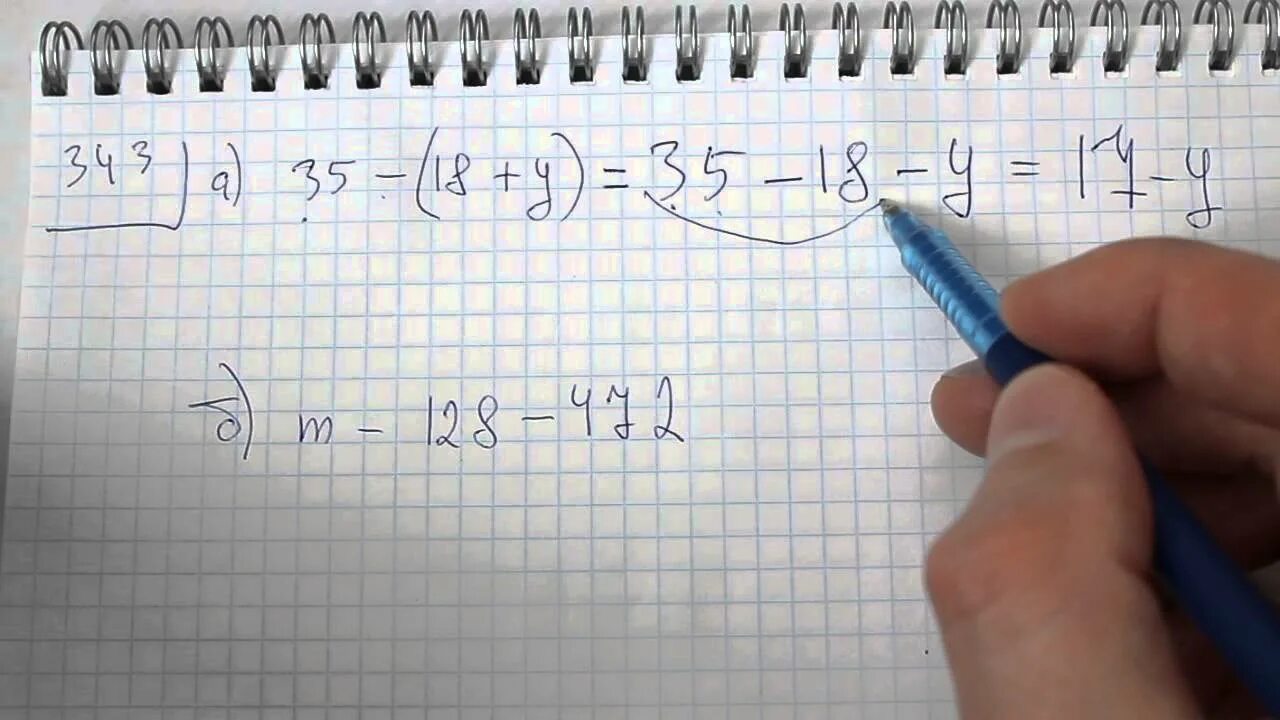 343) а) 35 - (18 + y) = 35 - 18 - y = 17 - y
б) m - 128 - 472